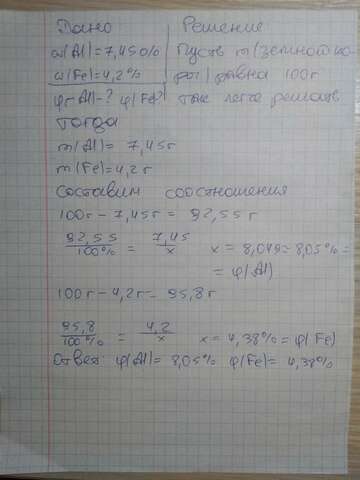 Дано Решение
ω(Al)=7,450% Пусть m(земной ко-
ω(Fe)=4,2% ры) равна 100г
φ(Al)-? φ(Fe)? так легче решать
Тогда
m(Al)= 7,45г
m(Fe)=4,2г
Составим соотношения
100г-7,45г= 92,55г
92,55/100% = 7,45/x x=8,049=8,05%=
=φ(Al)
100г-4,2г=95,8г
95,8/100% = 4,2/x x=4,38%=φ(Fe)
Ответ φ(Al)=8,05% φ(Fe)=4,38%